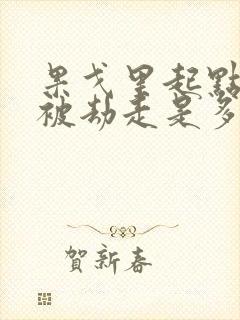 果戈里起點
被劫走是多
賀新春